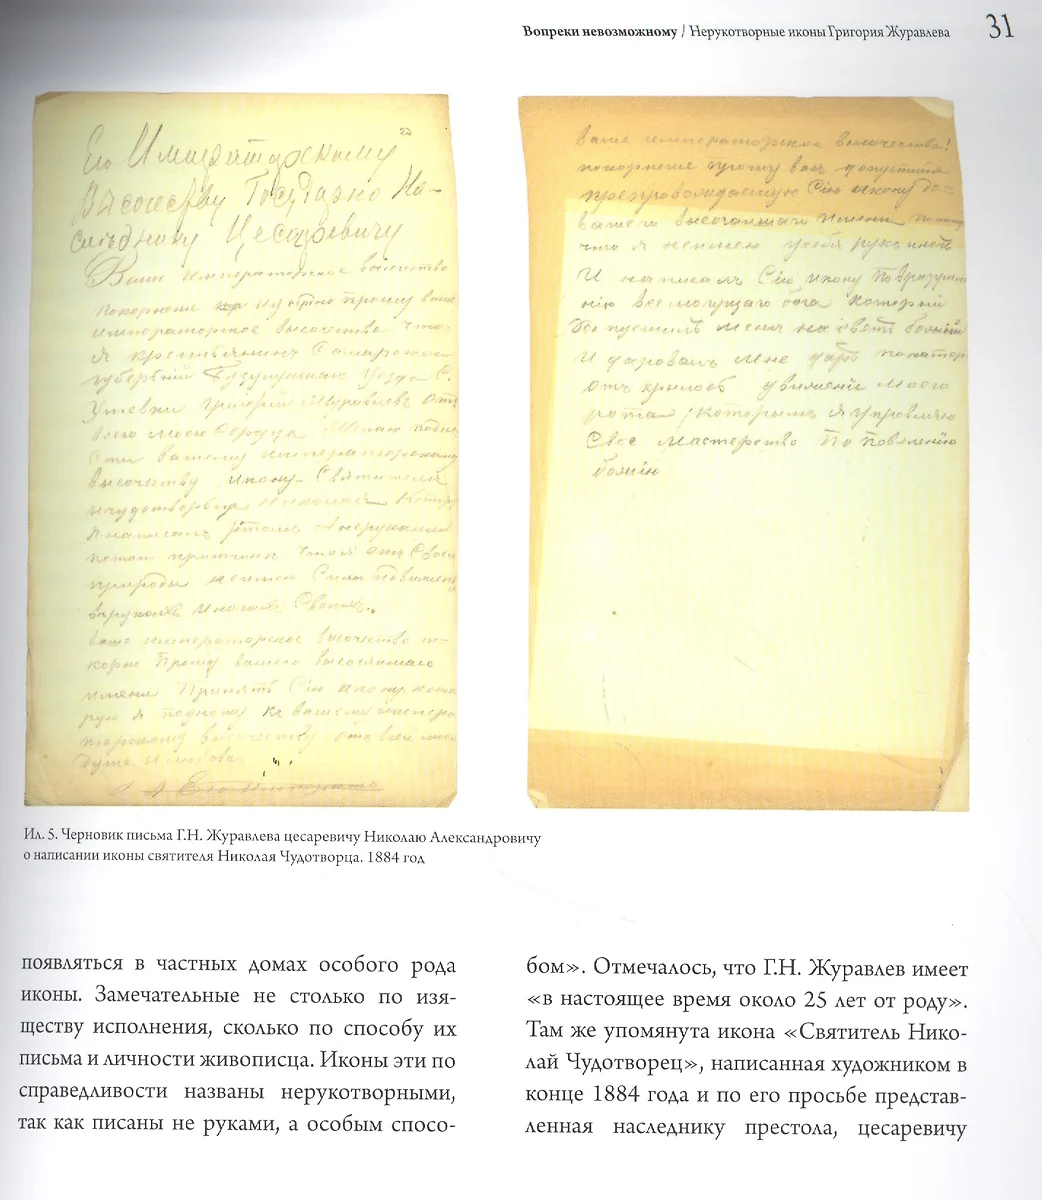 Вопреки невозможному / Нерукотворные иконы Григория Журавлева 31
23
Его Императорскому
Высочеству Государю На-
следнику Цесаревичу
Ваше императорское высочество
покорнение прошу ваше
императорское высочества что
я крестьянин Самарской
губернии Бузулукскаго Уезда С.
Утевки Григорий Журавлевъ отъ
всего моего Сердца желаю подне
Сти вашему императорскому
высочеству икону Святителя
ичудотворца Николая Котор
я написалъ ртомъ а нерукама
потой притчине что я отъ Своей
природы неимею Силы
врукахъ иногахъ Своихъ.
ваше императорское высочество по-
корно Прошу вашего высочаишаго
имени Принять Сію икону кото
рую я подношу къ вашему импера
торскому высочеству отъ всей моей
души и любови
ваше императорское высочества!
покорнение прошу васъ допустить
препровождаемую Сію икону до-
вашего высочаишаго имени потому
что я неимею усебя рукъ иногъ
И написалъ Сію икону Поврозуми
нию всемогущаго бога который
Допустилъ меня на светъ божий
И даровалъ мне даръ
отъ крылось движение моего
рота которымъ я управляю
Свое мастерство По повелению
божию
Ил. 5. Черновик письма Г.Н. Журавлева цесаревичу Николаю Александровичу
о написании иконы святителя Николая Чудотворца. 1884 год
появляться в частных домах особого рода
иконы. Замечательные не столько по изя-
ществу исполнения, сколько по способу их
письма и личности живописца. Иконы эти по
справедливости названы нерукотворными,
так как писаны не руками, а особым спосо-
бом». Отмечалось, что Г.Н. Журавлев имеет
«в настоящее время около 25 лет от роду».
Там же упомянута икона «Святитель Нико-
лай Чудотворец», написанная художником в
конце 1884 года и по его просьбе представ-
ленная наследнику престола, цесаревичу